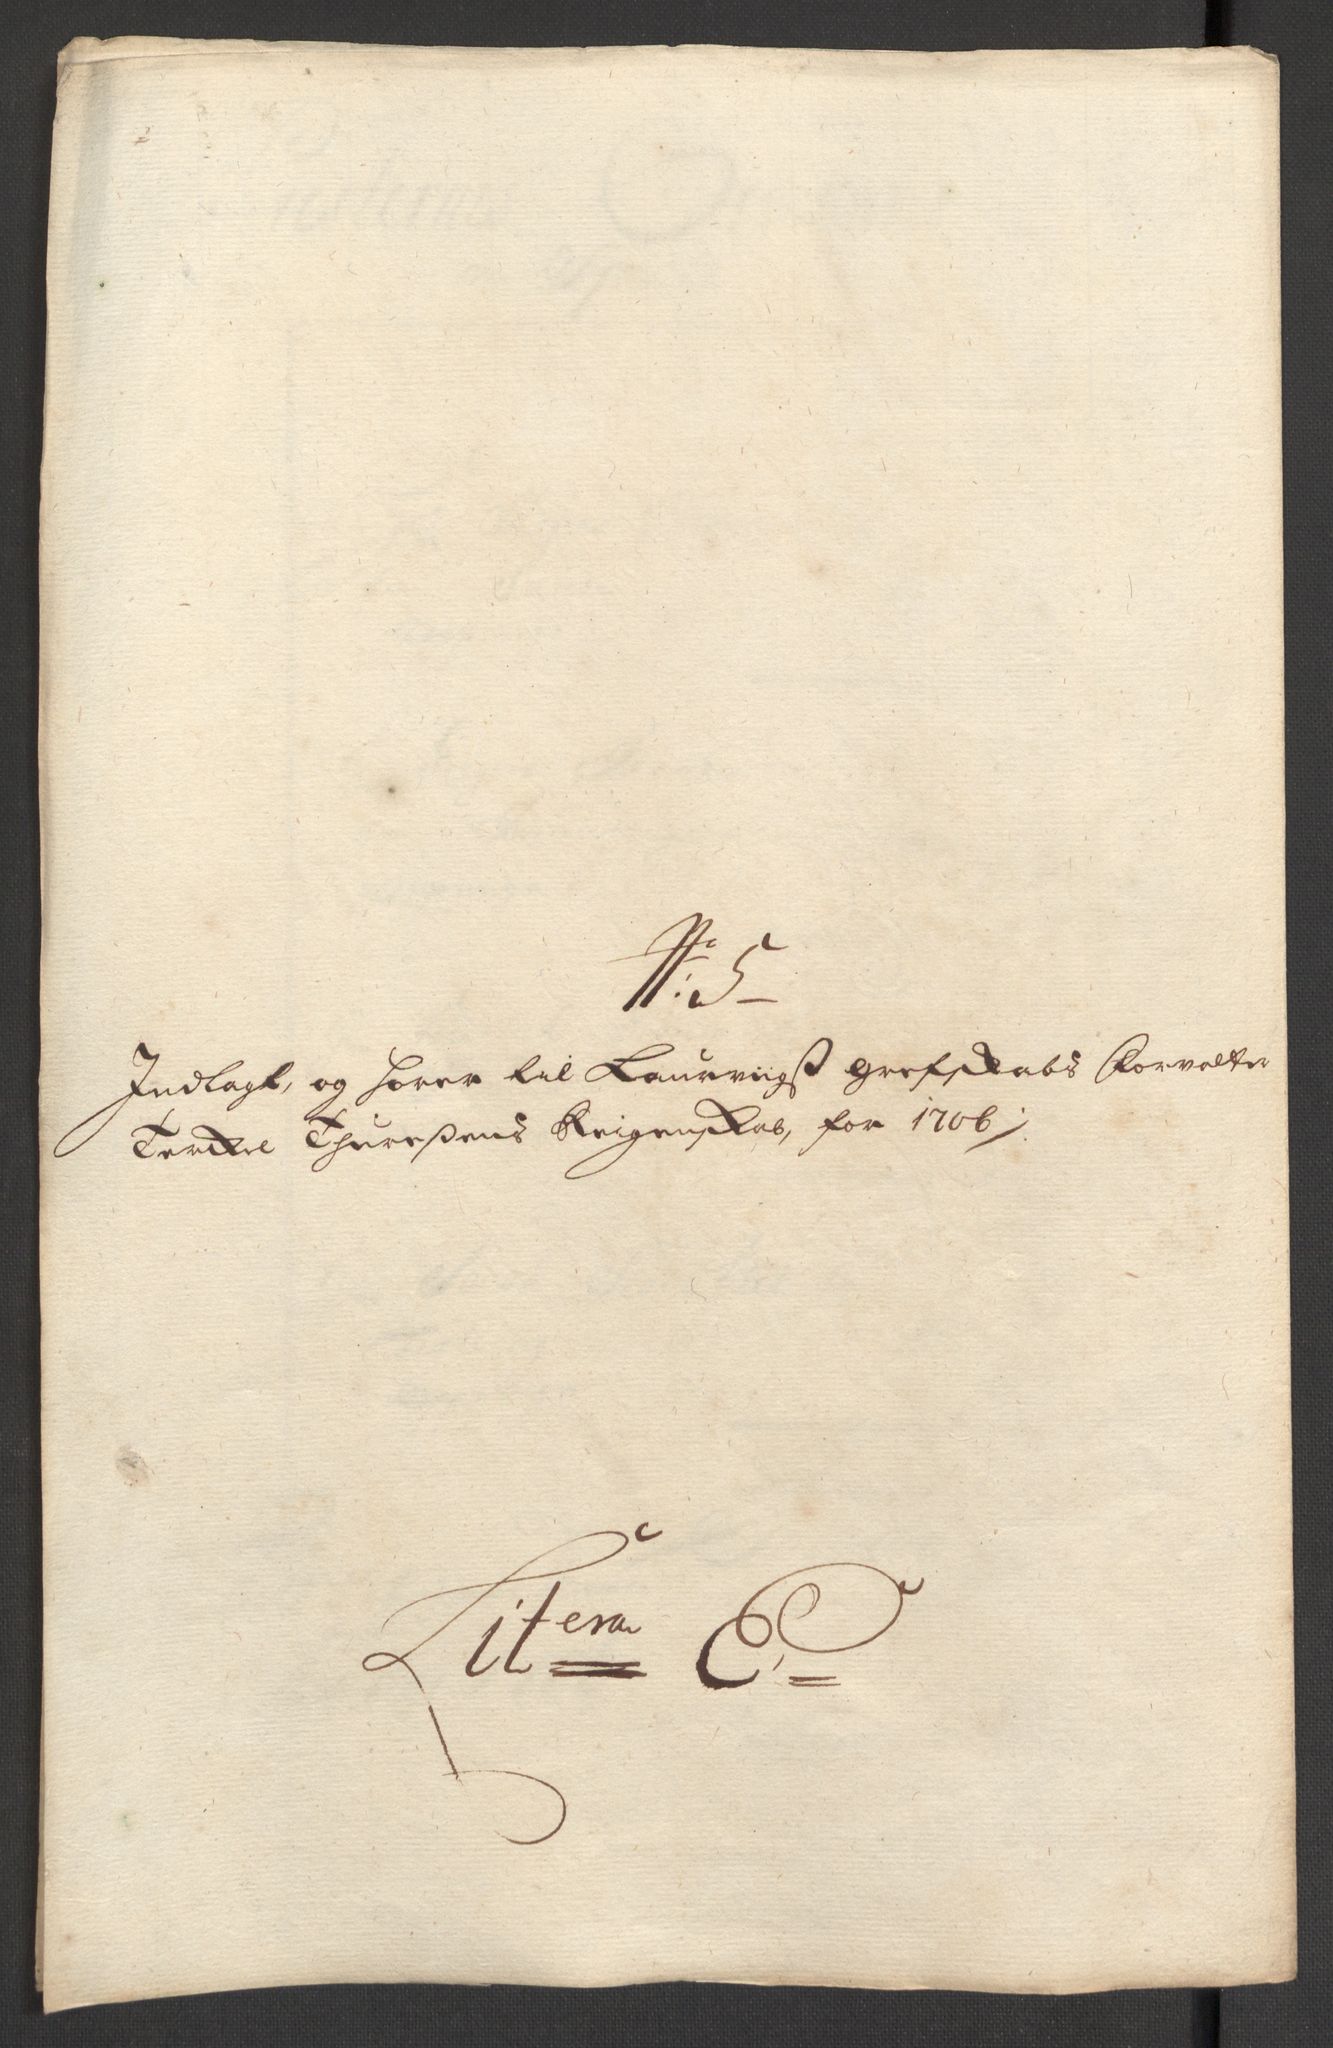 No: 5
Indlagt, og hører til Laurwiigs grefskabs Forvalter
Terkel Thuresens Reigenskab, for 1706
Litera C